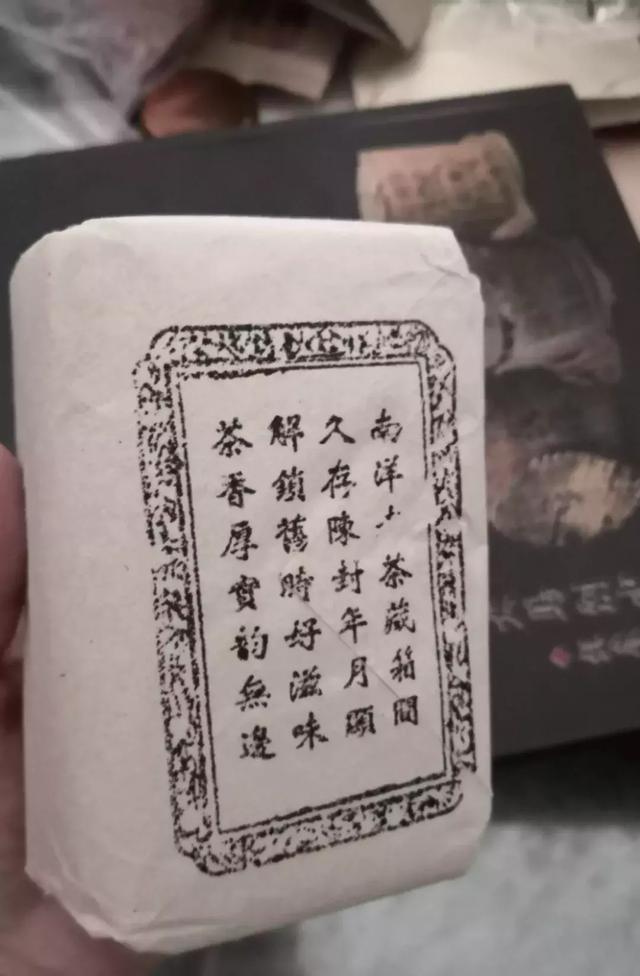 南洋茶藏箱間
久存陳封年月顯
解鎖舊時好滋味
茶香厚實韵無邊